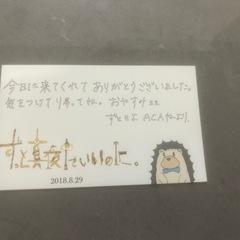 今日は来てくれて ありがとうございました。
気をつけて帰ってね。 おやすみ
ずとまよ ACAねより.
ずっと真夜中でいいのに。
2018.8.29